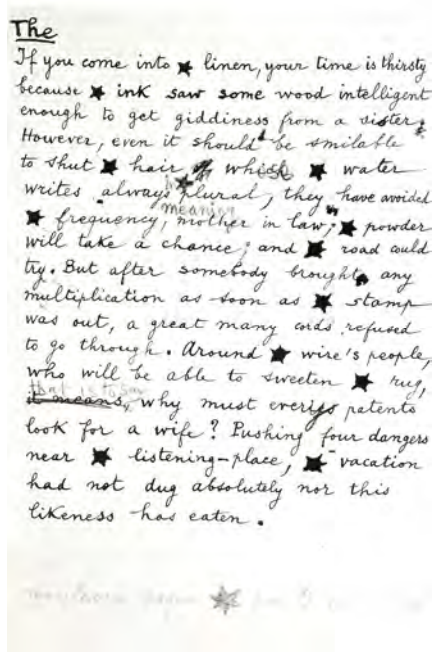 The
If you come into ★ linen, your time is thirsty
because ★ ink saw some wood intelligent
enough to get giddiness from a sister.
However, even it should be smilable
to shut ★ hair which ★ water
writes always plural, they have avoided
meaning
★ frequency, mother in law; ★ powder
will take a chance; and ★ road could
try. But after somebody brought any
multiplication as soon as ★ stamp
was out, a great many cords refused
to go through. Around ★ wire's people,
who will be able to sweeten ★ rug,
that is to say
it means, why must patents
look for a wife? Pushing four dangers
near ★ listening-place, ★ vacation
had not dug absolutely nor this
likeness has eaten.